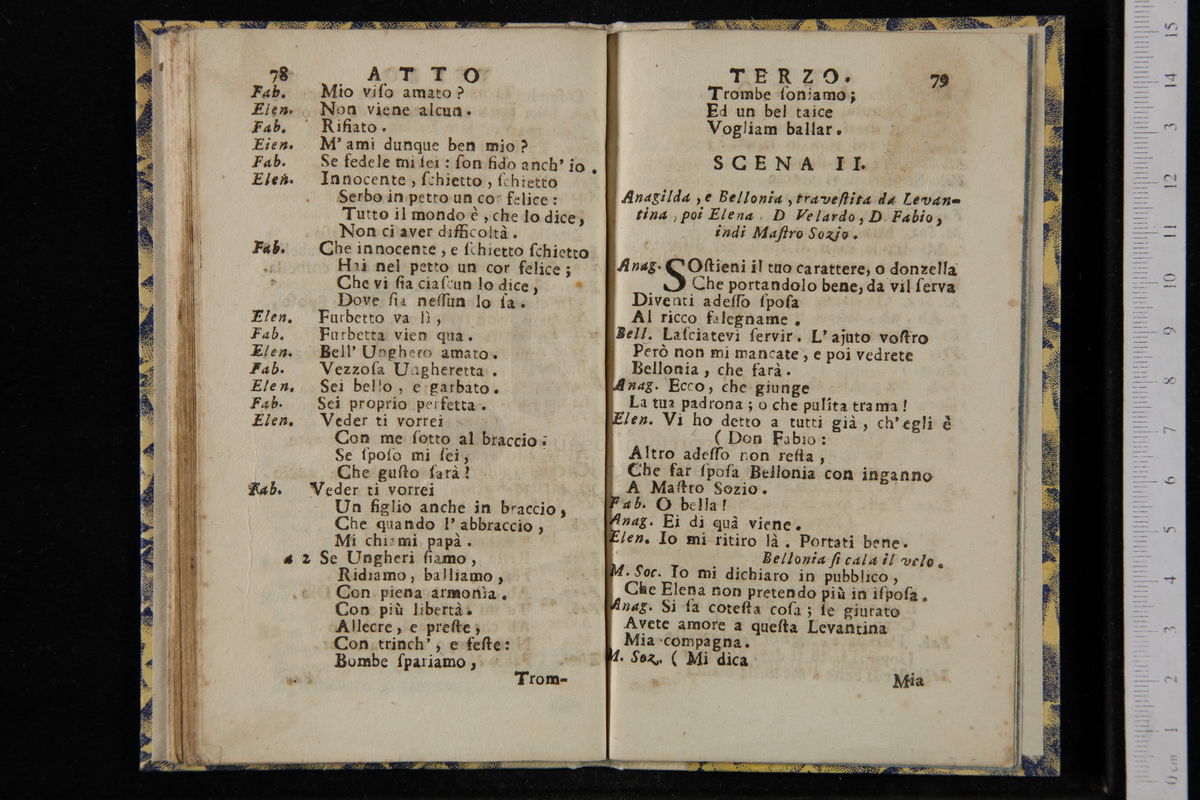 78 ATTO
Fab. Mio viſo amato?
Elen. Non viene alcun.
Fab. Rifiato.
Eien. M' ami dunque ben mio?
Fab. Se fedele mi ſei: ſon fido anch' io.
Elen. Innocente, ſchietto, ſchietto
Serbo in petro un cor felice:
Tutto il mondo è, che lo dice,
Non ci aver difficoltà.
Fab. Che innocente, e ſchietto ſchietto
Hai nel petto un cor felice;
Che vi ſia ciaſcun lo dice,
Dove ſia neſſun lo ſa.
Elen. Furbetto va lì,
Fab. Furbetta vien qua.
Elen. Bell' Unghero amato.
Fab. Vezzoſa Ungheretta.
Elen. Sei bello, e garbato.
Fab. Sei proprio perfetta.
Elen. Veder ti vorrei
Con me ſotto al braccio:
Se ſpoſo mi ſei,
Che guſto ſarà!
Fab. Veder ti vorrei
Un figlio anche in braccio,
Che quando l' abbraccio,
Mi chiami papà.
a 2 Se Ungheri ſiamo,
Ridiamo, balliamo,
Con piena armonìa.
Con più libertà.
Allecre, e preſte,
Con trinch', e feſte:
Bombe ſpariamo,
Trom-
TERZO. 79
Trombe ſoniamo;
Ed un bel taice
Vogliam ballar.
SCENA II.
Anagilda, e Bellonia, traveſtita da Levan-
tina, poi Elena. D Velardo, D. Fabio,
indi Maſtro Sozio.
Anag. SOſtieni il tuo carattere, o donzella
Che portandolo bene, da vil ſerva
Diventi adeſſo ſpoſa
Al ricco falegname.
Bell. Laſciatevi ſervir. L' ajuto voſtro
Però non mi mancate, e poi vedrete
Bellonia, che farà.
Anag. Ecco, che giunge
La tua padrona; o che pulita trama!
Elen. Vi ho detto a tutti già, ch' egli è
( Don Fabio:
Altro adeſſo non reſta,
Che far ſpoſa Bellonia con inganno
A Maſtro Sozio.
Fab. O bella!
Anag. Ei di quà viene.
Elen. Io mi ritiro là. Portati bene.
Bellonia ſi cala il velo.
M. Soc. Io mi dichiaro in pubblico,
Che Elena non pretendo più in iſpoſa.
Anag. Si ſa coteſta coſa; ſe giurato
Avete amore a queſta Levantina
Mia compagna.
M. Soz. ( Mi dica
Mia